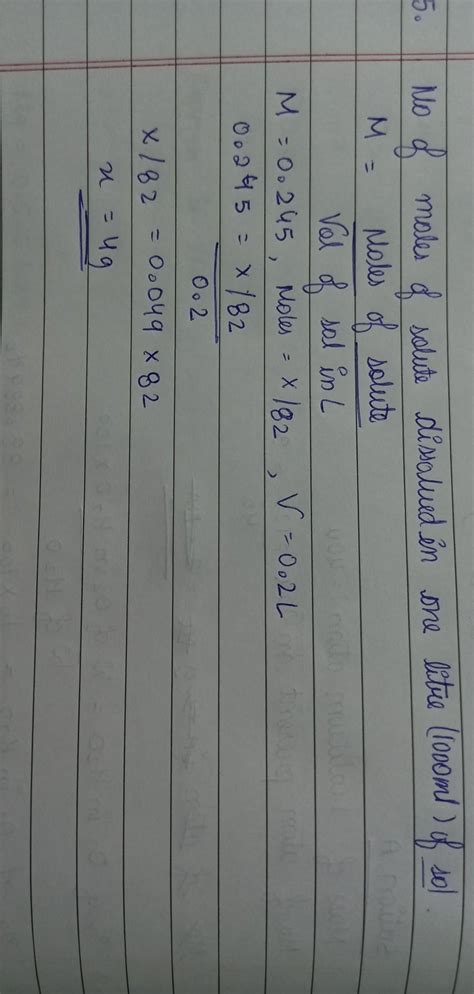 5. No of moles of solute dissolved in one litre (1000ml) of sol.
M = Moles of solute
Vol of sol in L
M = 0.245, Moles = x/82, V = 0.2L
0.245 = x/82
0.2
x/82 = 0.049 x 82
x = 4g